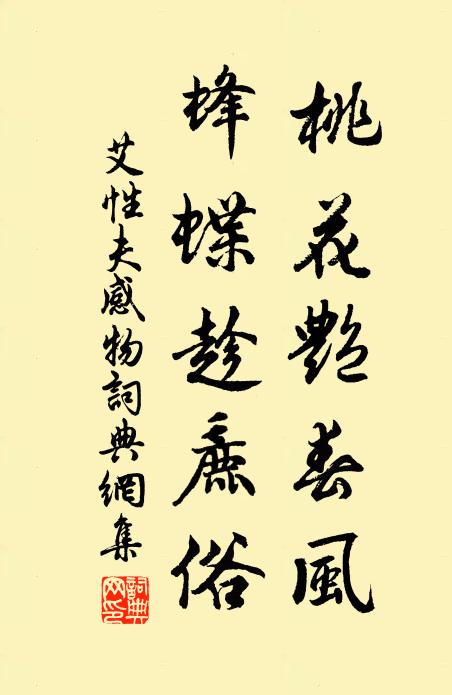 桃花艷春風
蜂蝶趁麁俗
艾性夫感物詞典網集
詞典网印